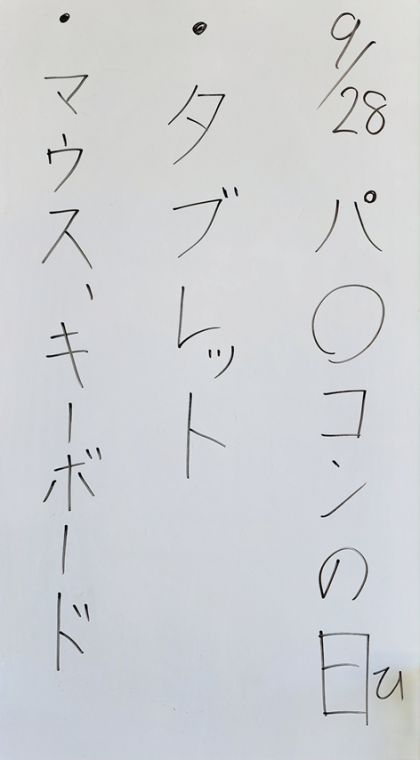 9/28 パ○コンの日
・タブレット
・マウス、キーボード